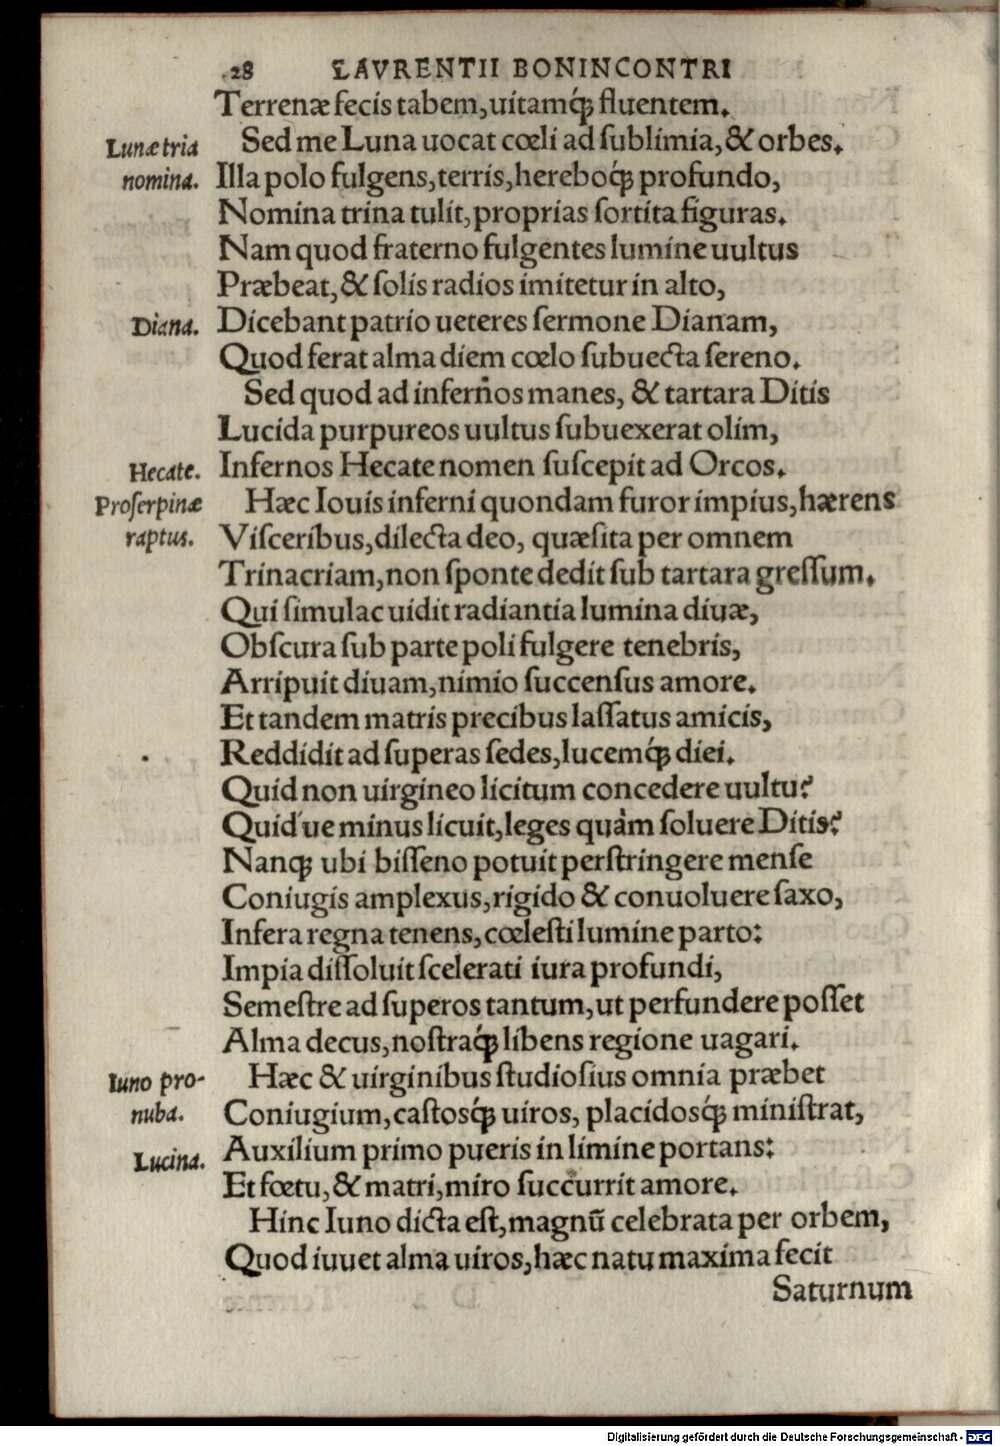 28 LAVRENTII BONINCONTRI
Terrenæ fecis tabem,uitamq́; fluentem.
Lunæ tria Sed me Luna uocat cœli ad ſublimia, & orbes.
nomina. Illa polo fulgens,terris,hereboq́; profundo,
Nomina trina tulit,proprias ſortita figuras.
Nam quod fraterno fulgentes lumine uultus
Præbeat,& ſolis radios imitetur in alto,
Diana. Dicebant patrio ueteres ſermone Dianam,
Quod ferat alma diem cœlo ſubuecta ſereno.
Sed quod ad infernos manes, & tartara Ditis
Lucida purpureos uultus ſubuexerat olim,
Hecate. Infernos Hecate nomen ſuſcepit ad Orcos.
Proſerpinæ Hæc Iouis inferni quondam furor impius,hærens
raptus. Viſceribus,dilecta deo, quæſita per omnem
Trinacriam,non ſponte dedit ſub tartara greſſum.
Qui ſimulac uidit radiantia lumina diuæ,
Obſcura ſub parte poli fulgere tenebris,
Arripuit diuam,nimio ſuccenſus amore.
Et tandem matris precibus laſſatus amicis,
Reddidit ad ſuperas ſedes,lucemq́; diei.
Quid non uirgineo licitum concedere uultu?
Quid'ue minus licuit,leges quàm ſoluere Ditis?
Nanq; ubi biſſeno potuit perſtringere menſe
Coniugis amplexus,rigido & conuoluere ſaxo,
Infera regna tenens,cœleſti lumine parto:
Impia diſſoluit ſcelerati iura profundi,
Semeſtre ad ſuperos tantum,ut perfundere poſſet
Alma decus,noſtraq́; libens regione uagari.
Iuno pro- Hæc & uirginibus ſtudioſius omnia præbet
nuba. Coniugium,caſtosq́; uiros, placidosq́; miniſtrat,
Lucina. Auxilium primo pueris in limine portans:
Et fœtu,& matri,miro ſuccurrit amore.
Hinc Iuno dicta eſt,magnū celebrata per orbem,
Quod iuuet alma uiros,hæc natu maxima fecit
Saturnum
Digitalisierung gefördert durch die Deutsche Forschungsgemeinschaft - DFG